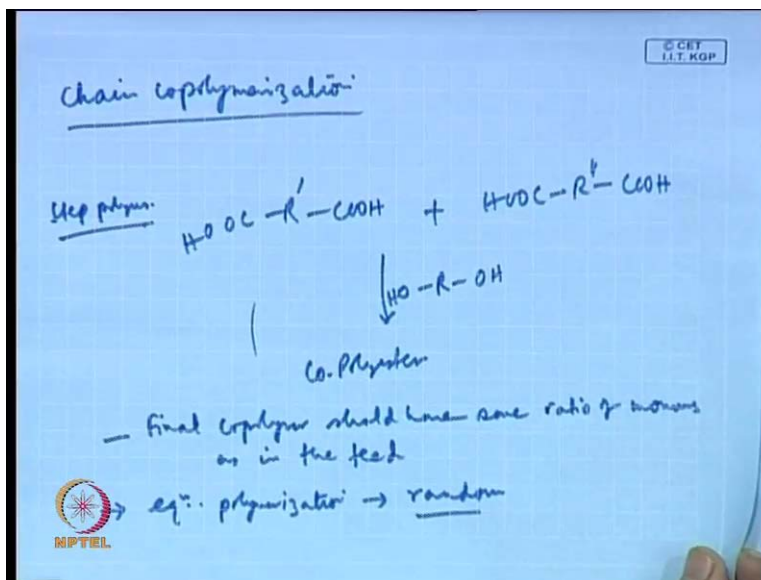 © CET
I.I.T. KGP
Chain copolymerization
Step polym.
HOOC-R'-COOH + HOOC-R''-COOH
HO-R-OH
Co. Polyester
- Final copolymer should have same ratio of monomers
as in the feed
→ eqm. polymerization → random
NPTEL